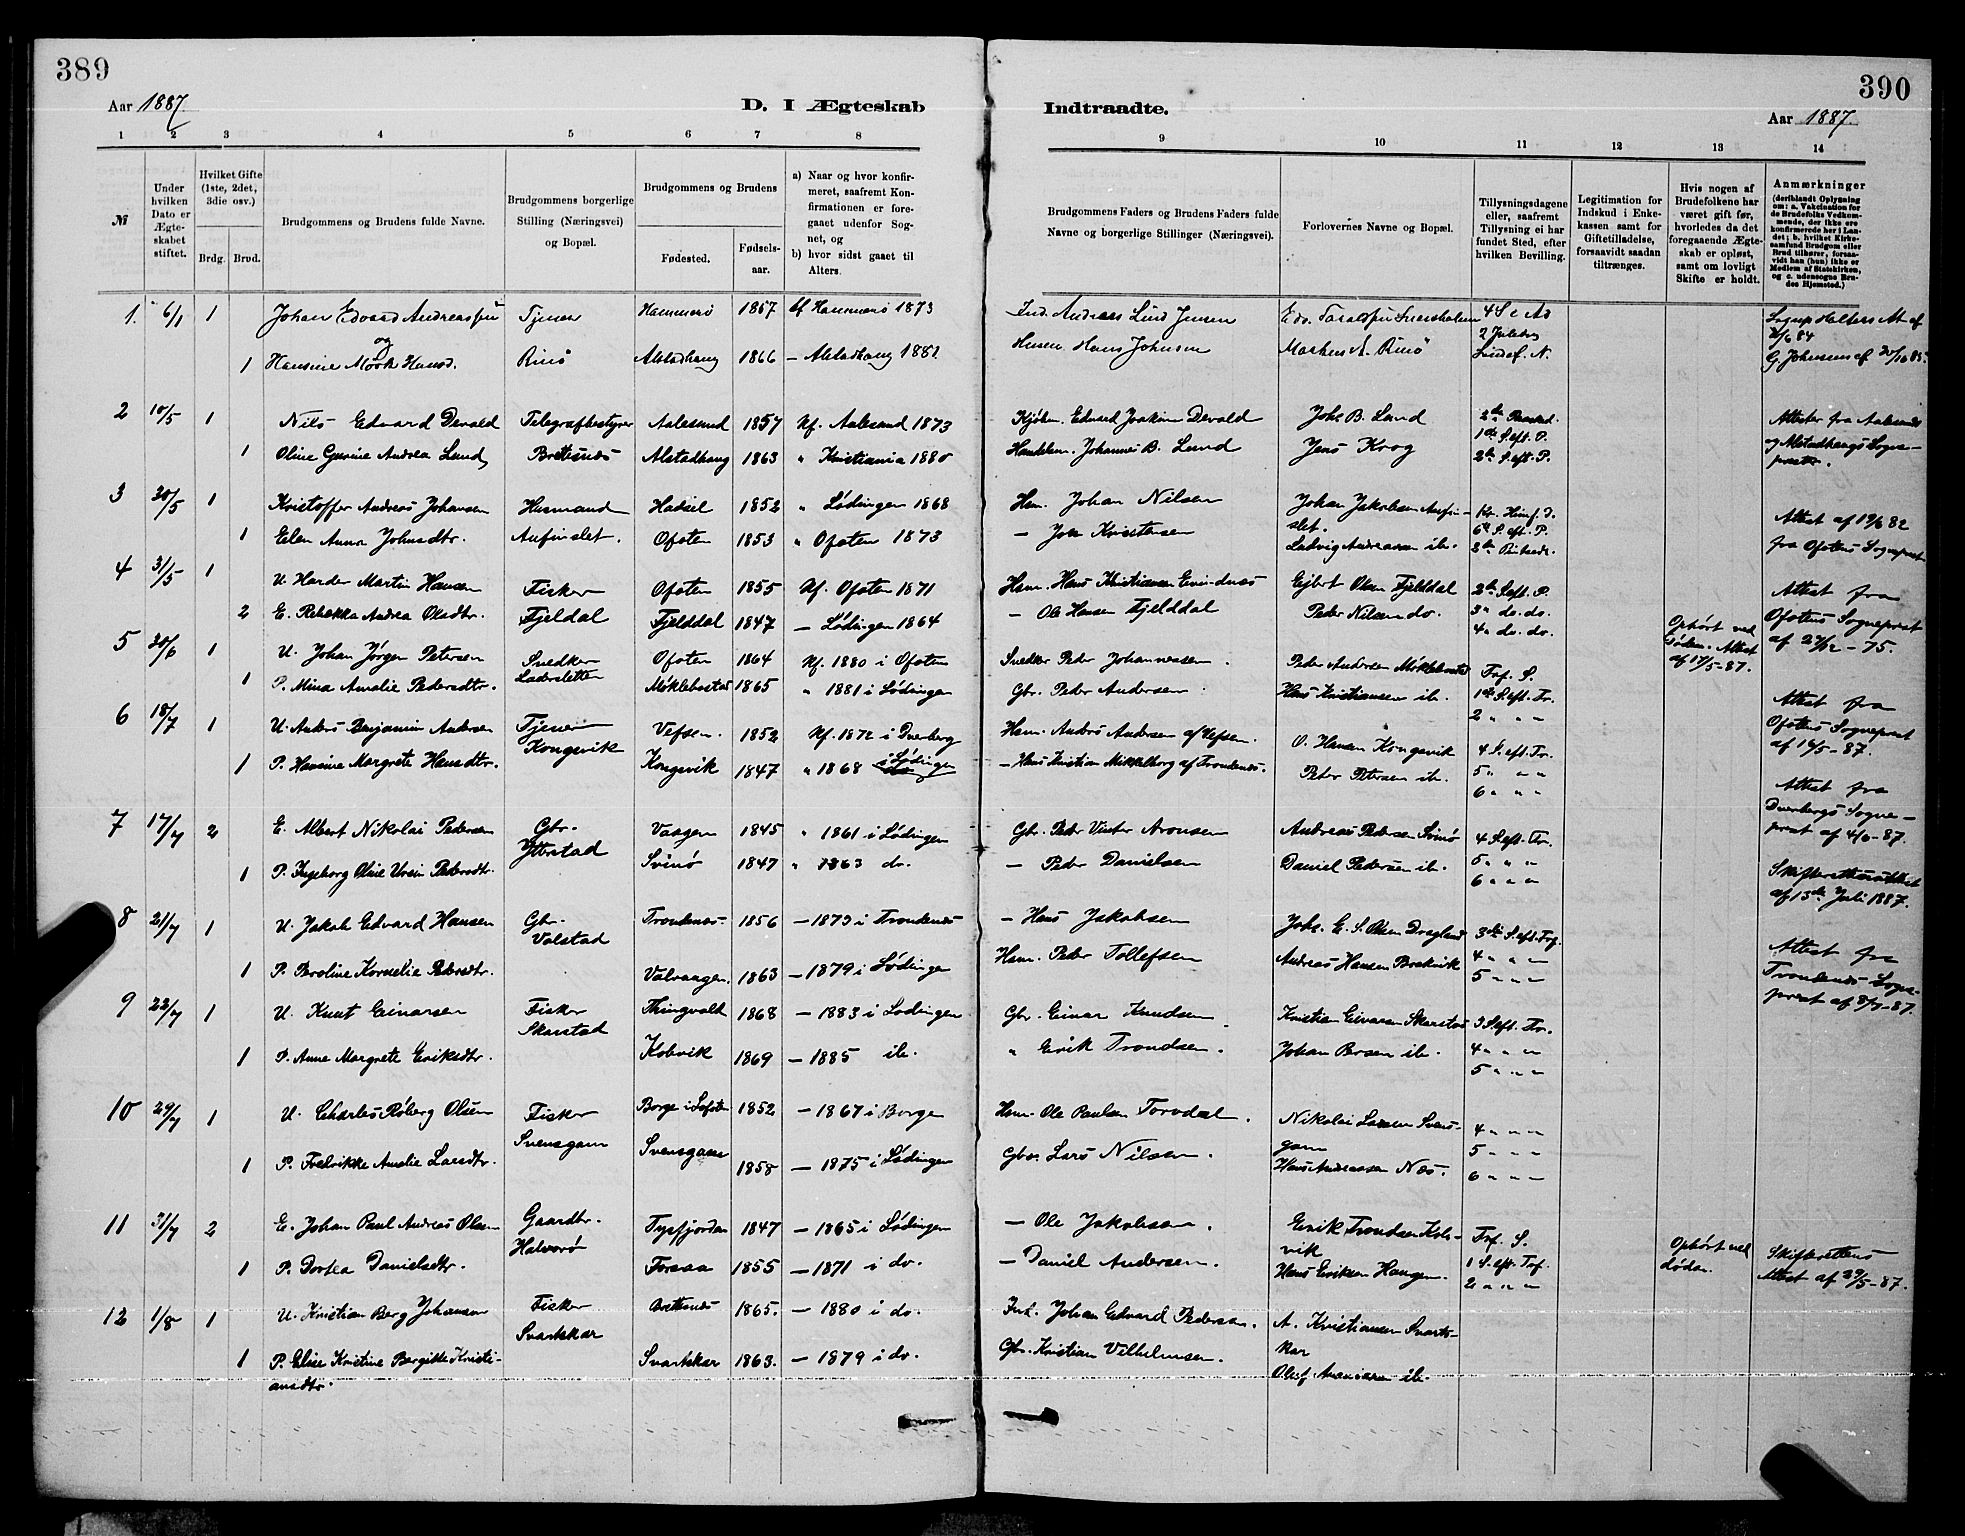 389
390
Aar 1887.
D. I Ægteskab
Indtraadte.
Aar 1887.
1 2 3 4 5 6 7 8
9 10 11 12 13 14
№
Under hvilken Dato er Ægteskabet stiftet.
Hvilket Gifte (1ste, 2det, 3die osv.)
Brdg. Brud.
Brudgommens og Brudens fulde Navne.
Brudgommens borgerlige Stilling (Næringsvei) og Bopæl.
Brudgommens og Brudens
Fødested.
Fødselsaar.
a) Naar og hvor konfirmeret, saafremt Konfirmationen er foregaaet udenfor Sognet, og
b) hvor sidst gaaet til Alters.
Brudgommens Faders og Brudens Faders fulde Navne og borgerlige Stillinger (Næringsvei).
Forlovernes Navne og Bopæl.
Tillysningsdagene eller, saafremt Tillysning ei har fundet Sted, efter hvilken Bevilling.
Legitimation for Indskud i Enkekassen samt for Giftetilladelse, forsaavidt saadan tiltrænges.
Hvis nogen af Brudefolkene har været gift før, hvorledes da det foregaaende Ægteskab er opløst, samt om lovligt Skifte er holdt.
Anmærkninger (deriblandt Oplysning om: a. Vakcination for de Brudefolks Vedkommende, der ikke ere konfirmerede her i Landet; b. hvilket Kirkesamfund Brudgom eller Brud tilhører, forsaavidt han (hun) ikke er Medlem af Statskirken, og c. udensogns Brudes Hjemsted.)
1. 6/1 1 Johan Edvard Andreas Tjener Hammerø 1857 Kf Hammerø 1873 Ind. Andreas Lind Jensen
og
1 Hansine Mork Hansd. Rinø Alstadhaug 1866 — Alstadhaug 1882 Hans Johnsen
2 10/5 1 Nils Edvard Devald Telegrafbestyrer Aalesund 1857 Kf. Aalesund 1873 Kjøbm. Edvard Joakim Devald Johs B. Lund
1 Oline Gurine Andrea Lund Brettesnæs Alstadhaug 1863 " Kristiania 1880 Handelsm. Johannes B. Lund Jens Krog 1ste S. eft. P.
2den S. eft. P.
Attester fra Aalesunds og Alstadhaugs Sogneprester.
3 30/5 1 Kristoffer Andreas Johansen Husmand Hadsel 1852 " Lødingen 1868 Hsm. Johan Nilsen Johan Jakobsen
1 Elen Anna Johnsdtr. Aufinslet. Ofoten 1853 " Ofoten 1873 — John Kristensen Ludvig Andreasen ib.
6te S. eft. P.
Attest af 19/6 82 fra Ofotens Sogneprest
4 31/5 1 U. Harder Martin Hansen Fisker Ofoten 1855 Kf. Ofoten 1871 Hsm. Hans Kristiansen Evindnæs Ejbert Olsen Fjelddal 2den S. eft. P.
2 E. Rebekka Andrea Olsdtr. Fjeldal Fjelddal 1847 — Lødingen 1864 — Ole Hansen Fjelddal Peder Nilsen do. 3die do. do.
4de do. do.
Ophørt ved Døden. Attest af 17/5-87.
Attest fra Ofotens Sogneprest af 27/12-75.
5 20/6 1 U. Johan Jørgen Petersen Snedker Ofoten 1864 Kf. 1880 i Ofoten Snedker Peder Johannesen Peder Andersen Møklebostad Trf. S.
1 P. Mina Amalie Pedersdtr. Møklebostad 1865 " 1881 i Lødingen Gbr. Peder Andersen Hans Kristiansen ib. 1ste S. eft. Tr.
2 " " "
Attest fra Ofotens Sogneprest af 14/5-87.
6 18/7 1 U. Anders Benjamin Andersen Tjener Vefsen. 1852 Kf. 1872 i Dverberg Hsm. Anders Andersen af Vefsen. O. Hansen Kongsvik 4 S. eft. Tr.
1 P. Hansine Margrete Hansdtr. Kongsvik Kongsvik 1847 " 1868 i Lødingen — Hans Kristian Mikkelborg af Trondenes. Peter Petersen ib. 5 " " "
6 " " "
Attest fra Dverbergs Sogneprest af 4/6-87.
7 17/7 2 E. Albert Nikolai Pedersen Gbr. Vaagen 1845 " 1861 i Lødingen Gbr. Peder Winter Aronsen Andreas Pedersen Svinø 4 S. eft. Tr.
1 P. Ingeborg Oline Ursin Pedersdtr. Ytterstad Svinø 1847 " 1863 do. — Peder Danielsen Daniel Pedersen ib. 5 " " "
6 " " "
Skifterettens Attest af 15de Juli 1887.
8 21/7 1 U. Jakob Edvard Hansen Gbr. Trondenes 1856 — 1873 i Trondenes — Hans Jakobsen Johs. E. S. Olsen Dragland 3die S. eft. Trf.
1 P. Peroline Kornelie Pedersdtr. Volstad Valvaagen. 1863 — 1879 i Lødingen Hsm. Peder Tollefsen Andreas Hansen Brækvik 4 " " "
5 " " "
Attest fra Trondenes Sogneprest af 8/7-87.
9 22/7 1 U. Knut Einarsen Fisker Thingvold 1868 — 1883 i Lødingen Gbr. Einar Knudsen Kristian Einarsen Skarstad 3 S. eft. Tr.
1 P. Anne Margrete Eriksdtr. Skarstad Kobvik 1869 — 1885 ib. " Erik Trondsen. Johan Persen ib. 4 " " "
5 " " "
10 29/7 1 U. Charles Røberg Olsen Fisker Borge i Lofoten 1852 — 1867 i Borge Hsm. Ole Paulsen Torvdal. Nikolai Larsen Svensgam 4 " " "
1 P. Fredrikke Amalie Larsdtr. Svensgam Svensgam 1858 — 1875 i Lødingen Gbr. Lars Nilsen. Hans Andreassen Næs. 5 " " "
6 " " "
11 31/7 2 E. Johan Paul Andreas Olsen Gaardbr. Tysfjorden 1847 — 1865 i Lødingen — Ole Jakobsen. Erik Trondsen Kobvik Trf. S.
1 P. Dortea Danielsdtr. Halvorø Forsaa 1855 — 1871 i do. — Daniel Andersen. Hans Eriksen Haugen. 1 S. eft. Trf.
2 " " "
Ophørt ved døden.
Skifterettens Attest af 29/5-87.
12 1/8 1 U. Kristian Berg Johansen Fisker Brettesnæs 1865. — 1880 i do. Ind. Johan Edvard Pedersen. A. Kristiansen Svartskar
1 P. Elise Kristine Bergitte Kristiansdtr. Svartskar Svartskar 1863. — 1879 i do. Gbr. Kristian Vilhelmsen. Oluf Ananiasen ib.